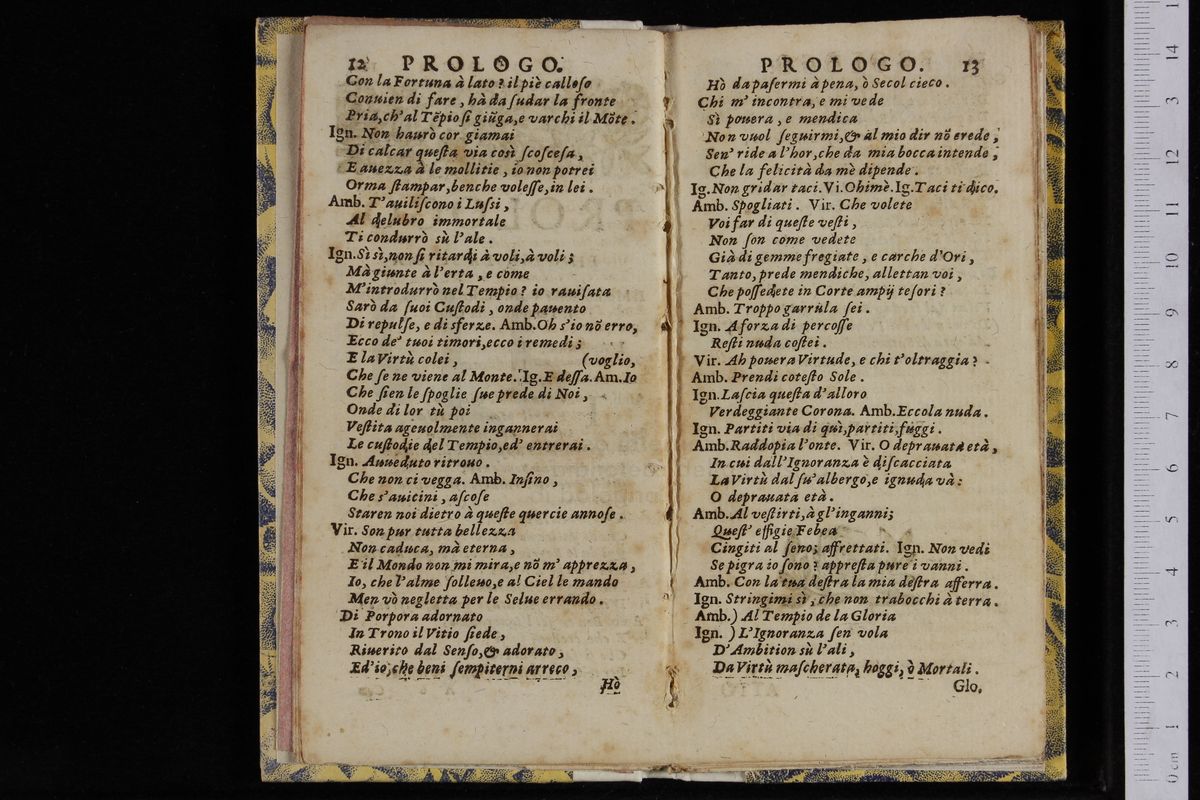 12 PROLOGO.
Con la Fortuna à lato? il piè calloſo
Conuien di fare, hà da ſudar la fronte
Pria, ch'al Tẽpio ſi giũga, e varchi il Mõte.
Ign. Non haurò cor giamai
Di calcar queſta via così ſcoſceſa,
E auezza à le mollitie, io non potrei
Orma ſtampar, benche voleſſe, in lei.
Amb. T'auiliſcono i Luſsi,
Al delubro immortale
Ti condurrò sù l'ale.
Ign. Sì sì, non ſi ritardi à voli, à voli;
Mà giunte à l'erta, e come
M'introdurrò nel Tempio? io rauiſata
Sarò da ſuoi Cuſtodi, onde pauento
Di repulſe, e di sferze. Amb. Oh s'io nõ erro,
Ecco de' tuoi timori, ecco i remedi;
E la Virtù colei, (voglio,
Che ſe ne viene al Monte. Ig. E deſſa. Am. Io
Che ſien le ſpoglie ſue prede di Noi,
Onde di lor tù poi
Veſtita ageuolmente ingannerai
Le cuſtodie del Tempio, ed' entrerai.
Ign. Auueduto ritrouo.
Che non ci vegga. Amb. Inſino,
Che s'auicini, aſcoſe
Staren noi dietro à queſte quercie annoſe.
Vir. Son pur tutta bellezza
Non caduca, mà eterna,
E il Mondo non mi mira, e nõ m' apprezza,
Io, che l'alme ſolleuo, e al Ciel le mando
Men vò negletta per le Selue errando.
Di Porpora adornato
In Trono il Vitio ſiede,
Riuerito dal Senſo, & adorato,
Ed' io, che beni ſempiterni arreco,
Hò
PROLOGO. 13
Hò da paſermi à pena, ò Secol cieco.
Chi m' incontra, e mi vede
Sì pouera, e mendica
Non vuol ſeguirmi, & al mio dir nõ crede;
Sen' ride a l'hor, che da mia bocca intende;
Che la felicità da mè dipende.
Ig. Non gridar taci. Vi. Ohimè. Ig. Taci ti dico.
Amb. Spogliati. Vir. Che volete
Voi far di queſte veſti,
Non ſon come vedete
Già di gemme fregiate, e carche d'Ori,
Tanto, prede mendiche, allettan voi,
Che poſſedete in Corte ampij teſori?
Amb. Troppo garrula ſei.
Ign. A forza di percoſſe
Reſti nuda coſtei.
Vir. Ah pouera Virtude, e chi t'oltraggia?
Amb. Prendi coteſto Sole.
Ign. Laſcia queſta d'alloro
Verdeggiante Corona. Amb. Eccola nuda.
Ign. Partiti via di quì, partiti, fuggi.
Amb. Raddopia l'onte. Vir. O deprauata età,
In cui dall'Ignoranza è diſcacciata
La Virtù dal ſu' albergo, e ignuda và:
O deprauata età.
Amb. Al veſtirti, à gl'inganni;
Queſt' effigie Febea
Cingiti al ſeno; affrettati. Ign. Non vedi
Se pigra io ſono? appreſta pure i vanni.
Amb. Con la tua deſtra la mia deſtra afferra.
Ign. Stringimi sì, che non trabocchi à terra.
Amb.) Al Tempio de la Gloria
Ign. ) L'Ignoranza ſen vola
D'Ambition sù l'ali,
Da Virtù maſcherata, hoggi, ò Mortali.
Glo.